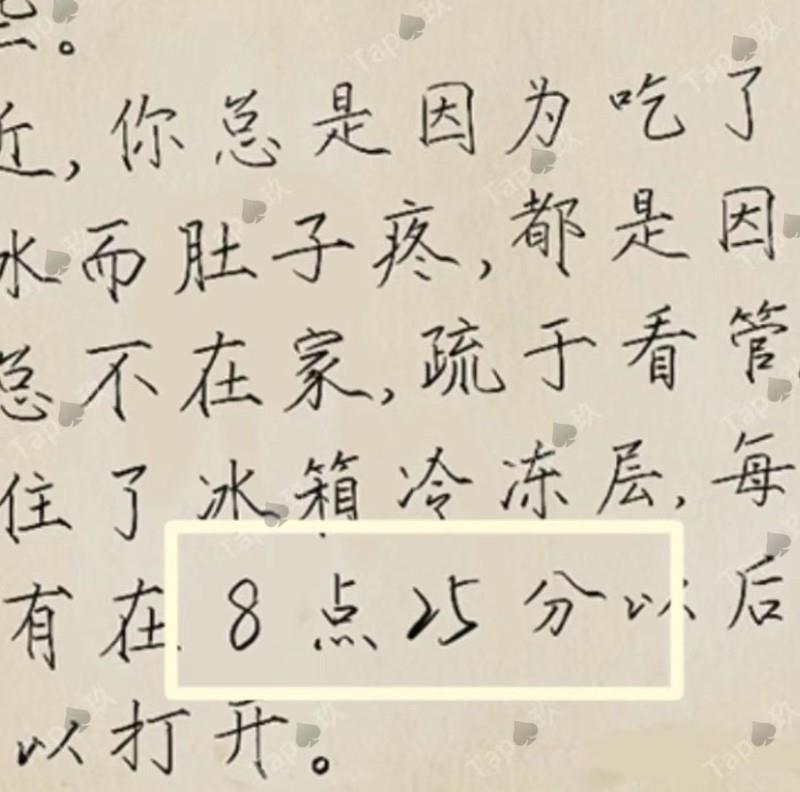 些。
近,你总是因为吃了
冰而肚子疼,都是因
总不在家,疏于看管,
住了冰箱冷冻层,每
有在8点25分以后
以打开。
Tap玖